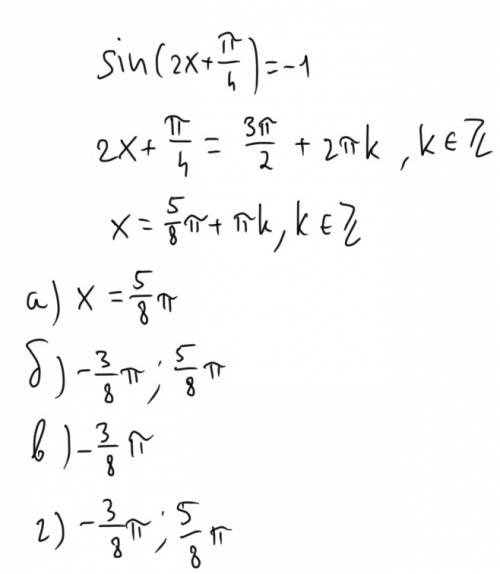 sin(2x+π/4)=-1
2x+π/4=3π/2+2πk, k∈ℤ
x=5/8π+πk, k∈ℤ
а) x=5/8π
б) -3/8π; 5/8π
в) -3/8π
г) -3/8π; 5/8π